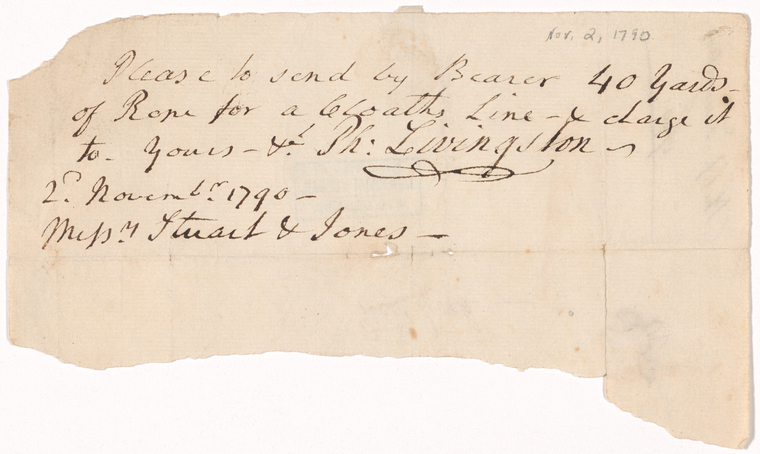 Nov. 2, 1790
Please to send by Bearer 40 Yards-
of Rope for a Cloaths Line - & charge it
to - Yours - &c. Ph: Livingston ~
2d. Novembr. 1790 -
Messrs Stuart & Jones -